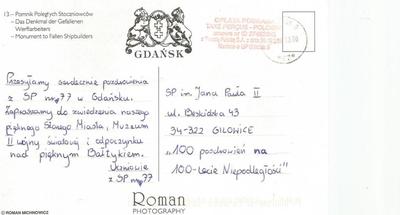 13.– Pomnik Poległych Stoczniowców
– Das Denkmal der Gefallenen
Werftarbeiters
– Monument to Fallen Shipbuilders
GDAŃSK
OPŁATA POBRANA
TAXE PERÇUE - POLOGNE
Przesyłamy serdeczne pozdrowienia
z SP nr 77 w Gdańsku.
Zapraszamy do zwiedzenia naszego
pięknego Starego Miasta, Muzeum
II wojny światowej i odpoczynku
nad pięknym Bałtykiem.
Uczniowie
z SP nr 77
SP im. Jana Pawła II
ul. Beskidzka 43
34-322 GILOWICE
"100 pozdrowień na
100-lecie Niepodległości"
Roman
PHOTOGRAPHY
© ROMAN MICHNOWICZ